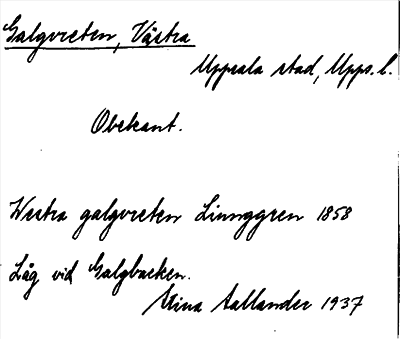 Galgvreten, Västra
Uppsala stad, Upps. l.
Obekant.
Westra galgvreten Linnggren 1858
Låg vid Galgbacken.
Stina Aallander 1937